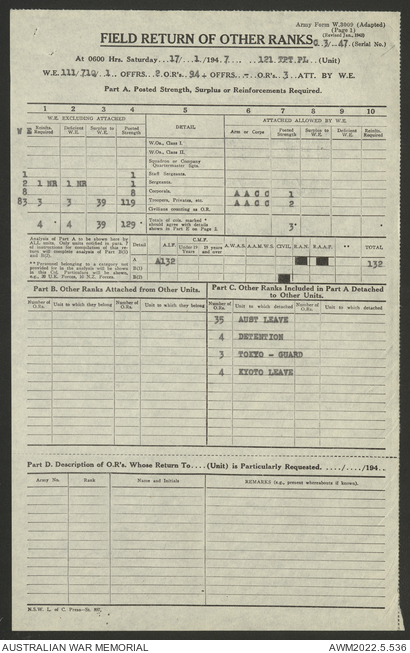 Army Form W.3009 (Adapted)
(Page 1)
(Revised Jan., 1942)
FIELD RETURN OF OTHER RANKS G.3/..47.(Serial No.)
At 0600 Hrs. Saturday...17/...1./194.7 ... ..121.TPT.PL..(Unit)
W.E.111/710/.1.. OFFRS..2.O.R's..94+ OFFRS.-..O.R's..3..ATT. BY W.E.
Part A. Posted Strength, Surplus or Reinforcements Required.
1 2 3 4 5 6 7 8 9 10
W.E. EXCLUDING ATTACHED DETAIL ATTACHED ALLOWED BY W.E.
W E Reinfts. Required Deficient W.E. Surplus to W.E. Posted Strength Arms or Corps Posted Strength Surplus to W.E. Deficient W.E. Reinfts. Required
W.Os., Class I.
W.Os., Class II.
Squadron or Company Quartermaster Sgts.
1 1 Staff Sergeants.
2 1 NR 1 NR 1 Sergeants.
8 8 Corporals. A A C C 1
83 3 3 39 119 Troopers, Privates, etc. A A C C 2
Civilians counting as O.R.
4 4 39 129 Totals of cols. marked * should agree with details shown in Part II on Page 2. 3
Analysis of Part A to be shown here by ALL units. Detail A.I.F. C.M.F. Under 19 years 19 years and over A.W.A.S. A.A.M.W.S. CIVIL. R.A.N. R.A.A.F. ** TOTAL
A A132 132
B(i)
B(ii)
Part B. Other Ranks Attached from Other Units.
Part C. Other Ranks Included in Part A Detached to Other Units.
Number of O.Rs. Unit to which they belong Number of O.Rs. Unit to which they belong Number of O.Rs. Unit to which detached Number of O.Rs. Unit to which detached
35 AUST LEAVE
4 DETENTION
3 TOKYO - GUARD
4 KYOTO LEAVE
Part D. Description of O.R's. Whose Return To....(Unit) is Particularly Requested. ..../..../194..
Army No. Rank Name and Initials REMARKS (e.g., present whereabouts if known).
AUSTRALIAN WAR MEMORIAL AWM2022.5.536